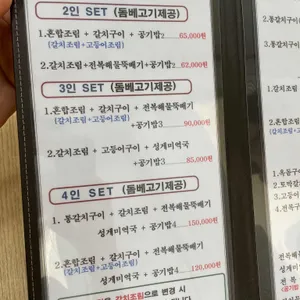 2인 SET (돔베고기제공)
1.혼합조림 + 갈치구이 + 공기밥2 ... 65,000원
(갈치조림+고등어조림)
2.갈치조림+전복해물뚝배기+공기밥2 ... 62,000원
3인 SET (돔베고기제공)
1.혼합조림 + 갈치구이 + 전복해물뚝배기
(갈치조림+고등어조림)
+공기밥3 ... 90,000원
2.갈치조림 + 고등어구이 + 성게미역국
+공기밥3 ... 85,000원
4인 SET (돔베고기제공)
1. 통갈치구이 + 갈치조림 + 전복해물뚝배기
성게미역국 + 공기밥4 ... 150,000원
2.혼합조림 + 갈치구이 + 전복해물뚝배기
(갈치조림+고등어조림)
성게미역국 + 공기밥4 ... 120,000원
갈치조림으로 변경 시